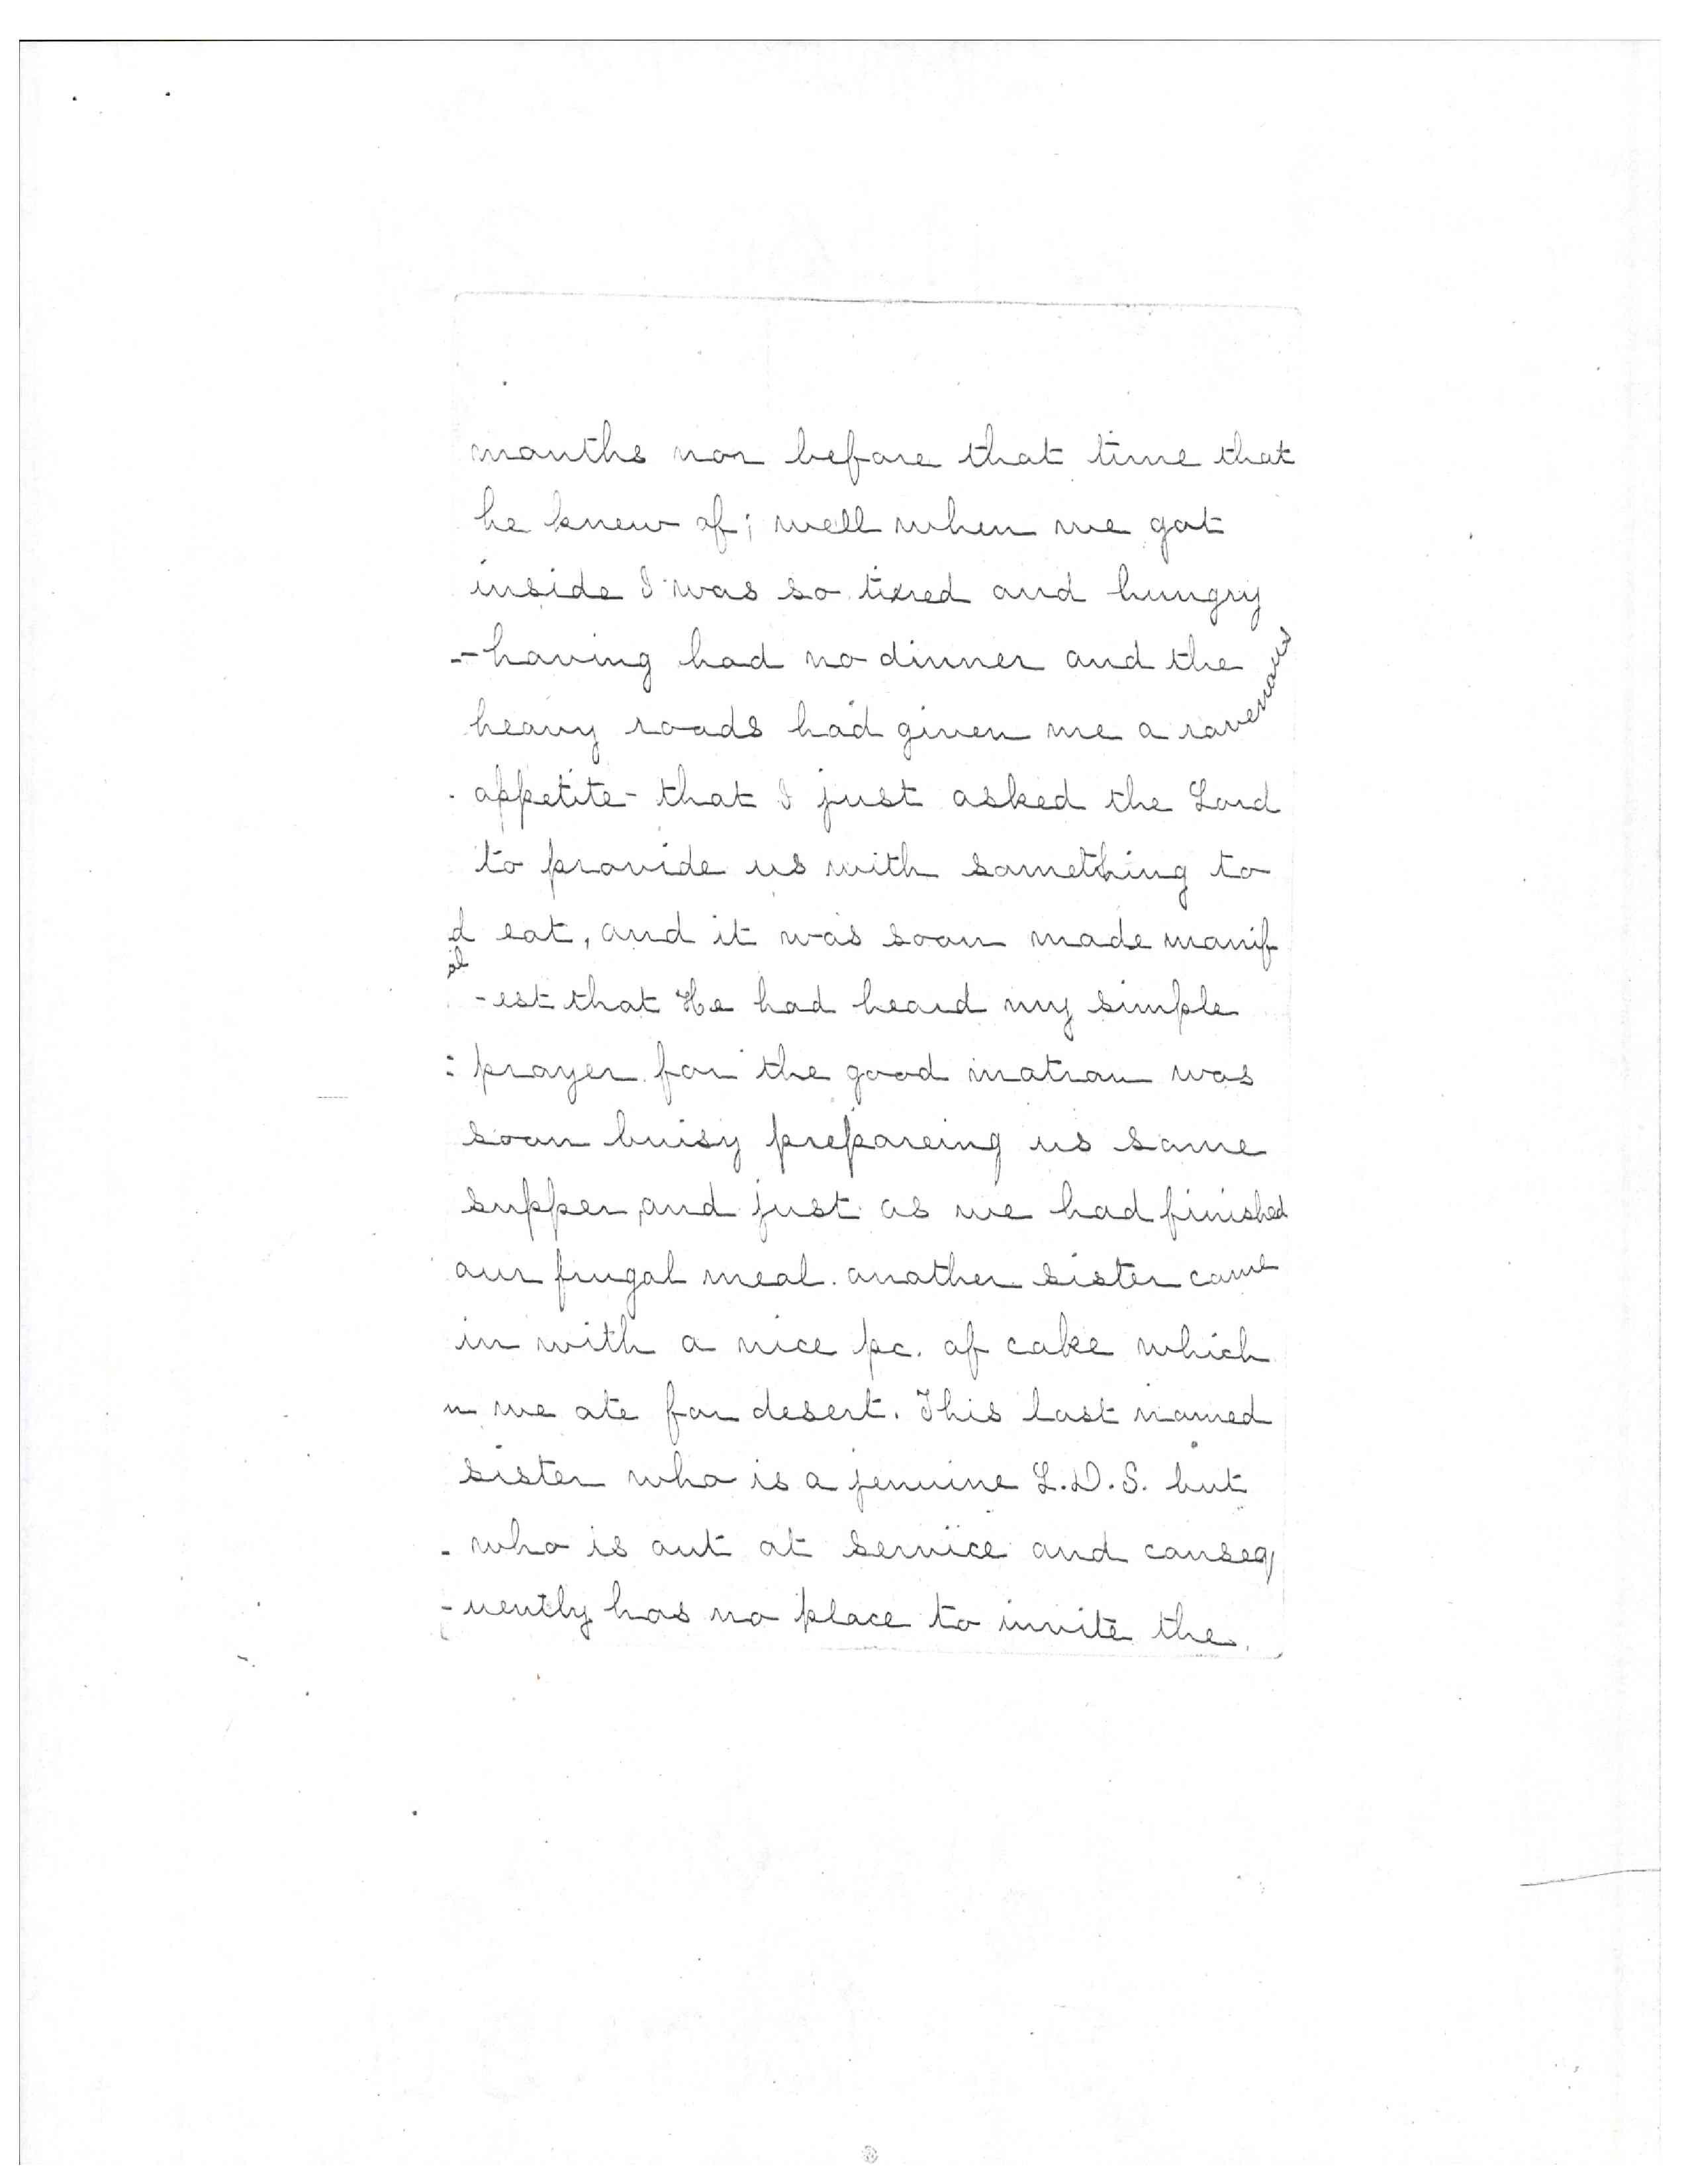 months nor before that time that
he knew of; well when we got
inside I was so tired and hungry
- having had no dinner and the
heavy roads had given me a ravenous
appetite - that I just asked the Lord
to provide us with something to
eat, and it was soon made manif
-est that He had heard my simple
prayer for the good matron was
soon buisy prepareing us some
supper, and just as we had finished
our frugal meal. another sister came
in with a nice pc. of cake which
we ate for desert. This last named
sister who is a jenuine L.D.S. but
who is out at service and conseq
-uently has no place to invite the